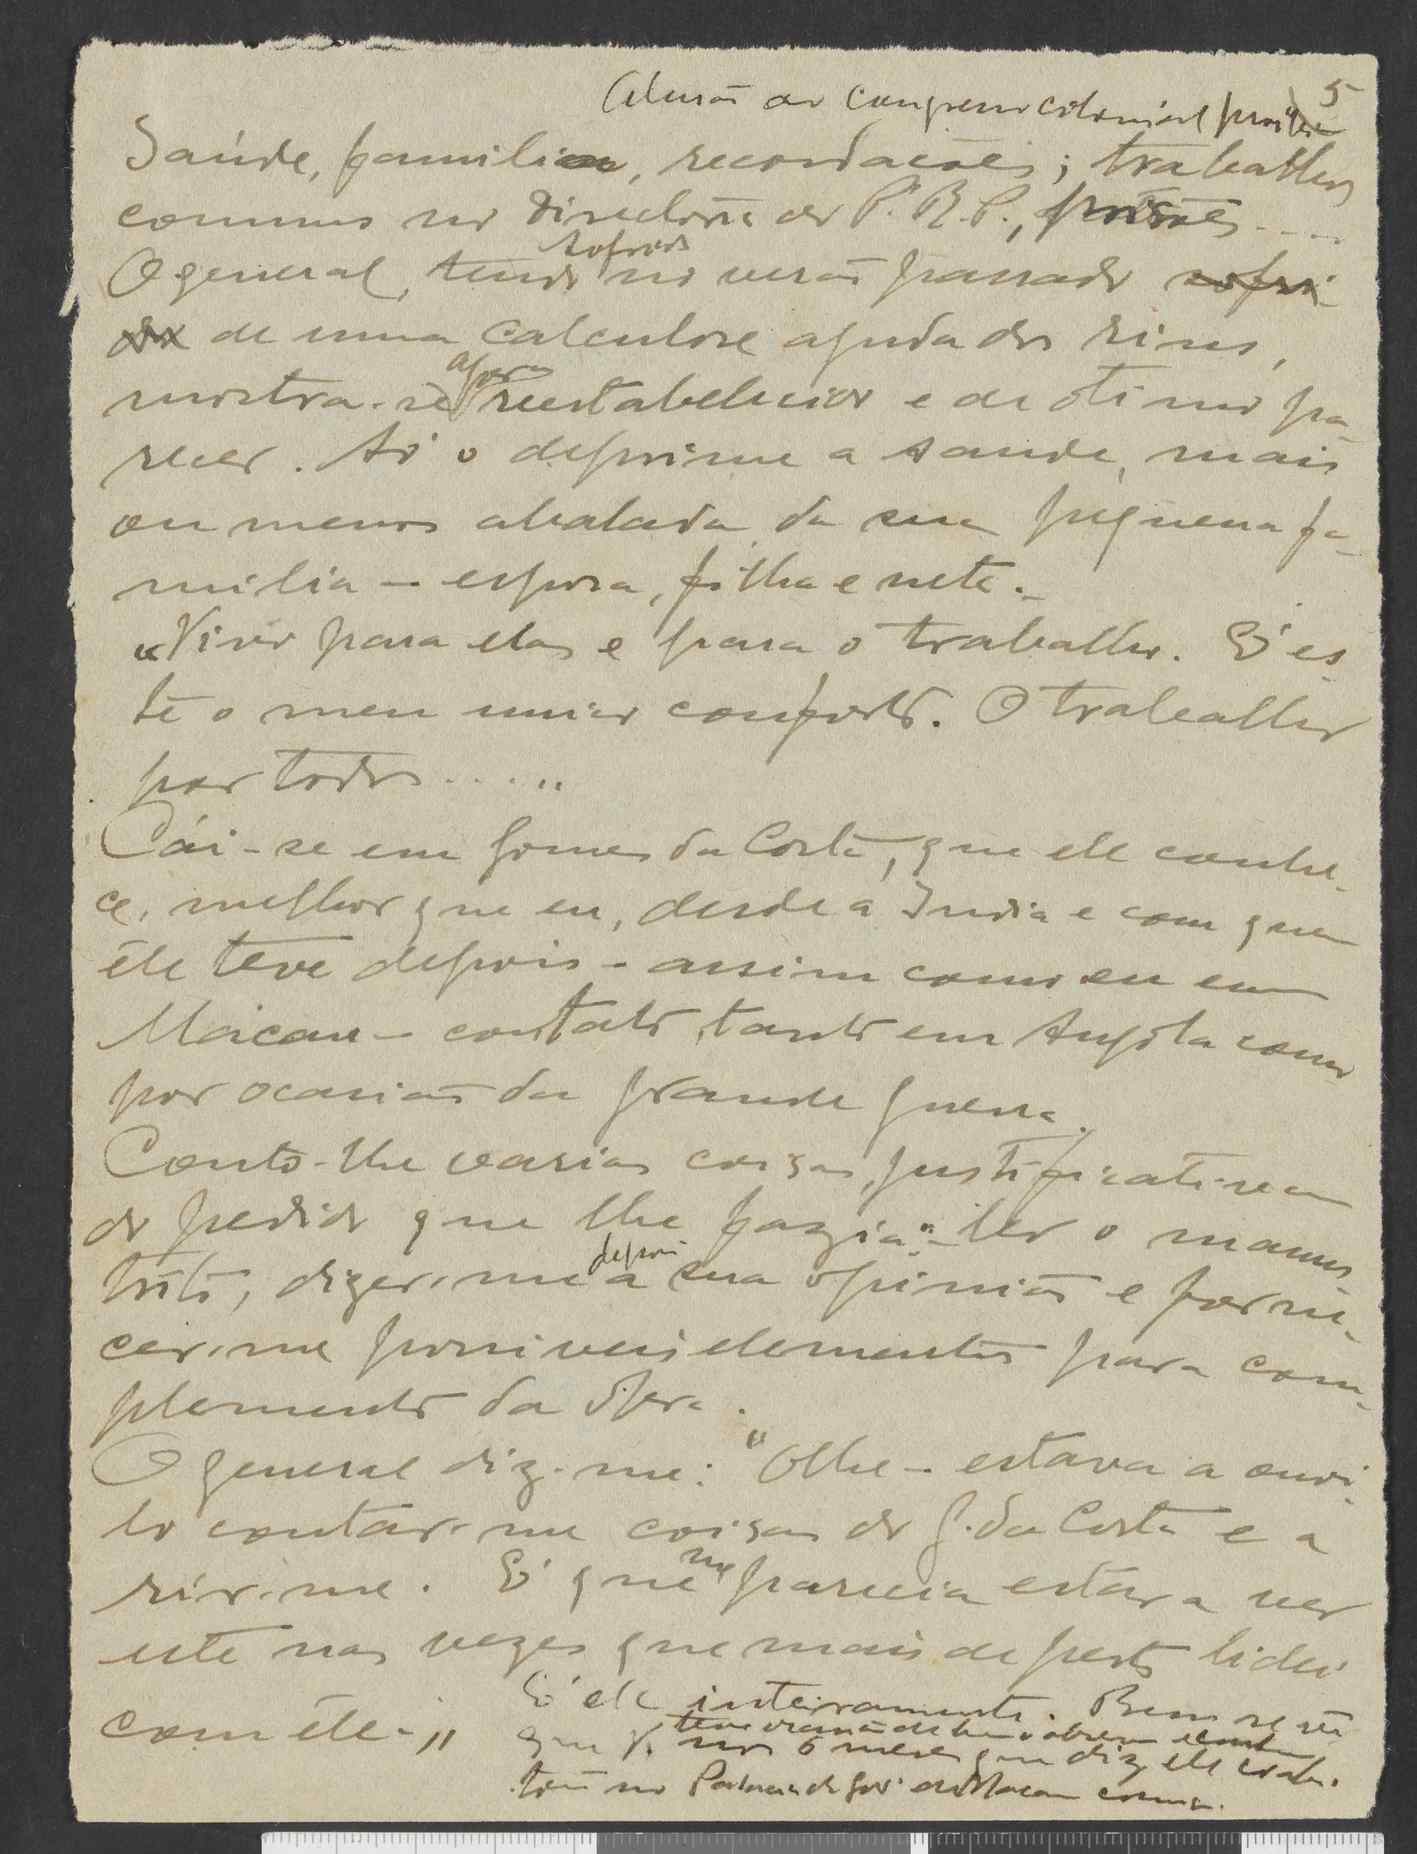 5
Alusão ao Congresso colonial
Saúde, familia, recordações; trabalhos
comuns no Directorio do P.R.P., prisões....
O general, tendo sofrido no verão passado sofri-
do de uma calculose aguda dos rins,
mostra-se agora reestabelecido e de otimo pa-
recer. Só o deprime a saude, mais
ou menos abalada, da sua pequena fa-
milia - esposa, filha e neta.-
"Viver para elas e para o trabalho. E' es-
te o meu unico conforto. O trabalho
por todos ....."
Cái-se em Gomes da Costa, que ele conhe-
ce, melhor que eu, desde a India e com quem
êle teve depois - assim como eu em
Macau - contato, tanto em Angola como
por ocasião da grande guerra.
Conto-lhe varias coisas, justificativas
do pedido que lhe fazia: - ler o manus
crito, dizer-me depois a sua opinião e forne-
cer-me possiveis elementos para com-
plemento da obra.
O general diz-me: "Olhe - estava a ouvi-
lo contar-me coisas do G. da Costa e a
rir-me. E' que me parecia estar a ver
este nas vezes que mais de perto lidei
com êle-"
E' ele inteiramente. Bem se vê
que V. teve ocasião de bem o observar
nos 6 meses que diz ele
no Palacio do Gov. de Macau